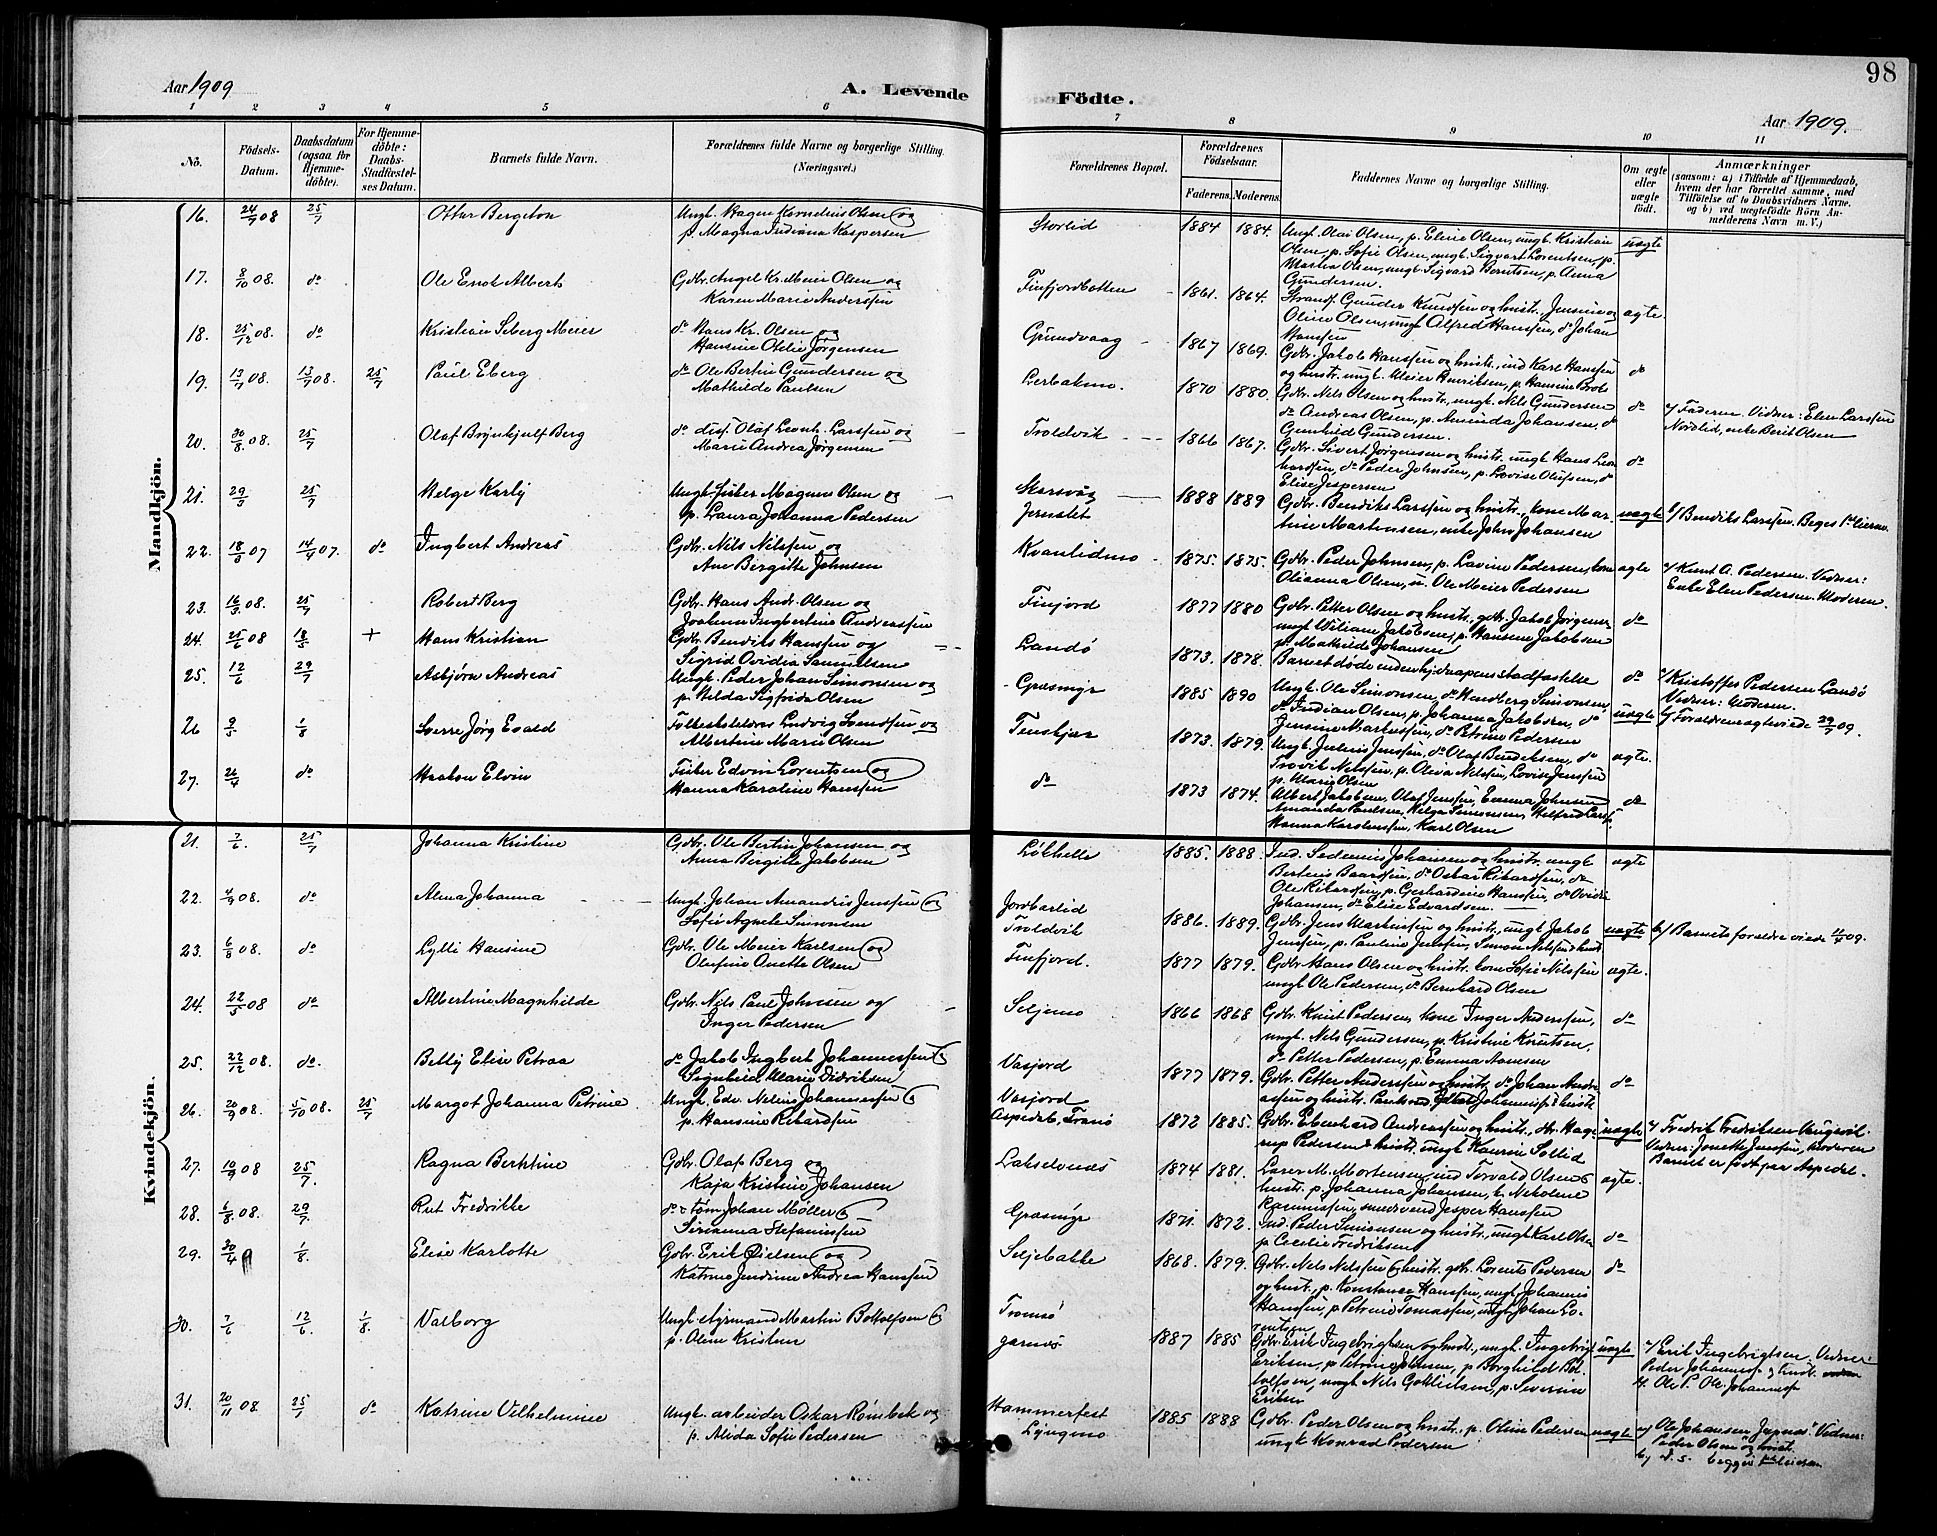 98
Aar 1909
A. Levende Födte.
Aar 1909.
1 2 3 4 5 6 7 8 9 10 11
No. Födsels-Datum. Daabsdatum (ogsaa for Hjemme-döbte). For Hjemme-döbte: Daabs-Stadfæstel-ses Datum. Barnets fulde Navn. Forældrenes fulde Navne og borgerlige Stilling. (Næringsvei). Forældrenes Bopæl. Forældrenes Födselsaar. Faderens. Moderens. Faddernes Navne og borgerlige Stilling. Om ægte eller uægte födt. Anmærkninger (saasom: a) i Tilfælde af Hjemmedaab, hvem der har forrettet samme, med Tilföielse af to Daabsvidners Navne, og b) ved uægtefödte Börn An-melderens Navn m. V.)
Mandkjön.
16. 24/7 08 25/7 Ottar Bergeton Ungk. Hagen Kornelius Olsen og Storlid 1884 1884. Ungk. Olai Olsen, p. Eline Olsen, ungk. Kristian uægte
p. Magna Indiana Kaspersen Olsen, p. Sofie Olsen, ungk. Sigvart Lorentsen, p.
Martha Olsen, ungk. Sigvard Berntsen, p. Anna
Gundersen.
17. 8/10 08. do Ole Enok Albert Gdbr. Angel Kr. Meier Olsen og Finfjordbotten 1861. 1864. Strands. Gunder Knudsen og hustr. Jensine og ægte.
Karen Marie Anderssen Oline Olsen, ungk. Alfred Hanssen, do Johan
Hanssen
18. 25/12 08. do Kristian Seberg Meier do Hans Kr. Olsen og Grundvaag 1867 1869. Gdbr. Jakob Hanssen og hustr., ind. Karl Hanssen do
Hansine Otelie Jørgensen og hustr. ungk. Meier Henriksen, p. Hansine
19. 13/7 08. 13/9 08. 25/7 Paul Eberg do Ole Bertin Gundersen og Lerbakmo. 1870 1880. Gdbr. Nils Olsen og hustr., ungk. Nils Gundersen do a/ Faderen. Vidner: Elen Larssen
Mathilde Paulsen do Andreas Olsen, p. Aminda Johansen, do Nordlid, enke Berit Olsen
Gunhild Gundersen.
20. 30/8 08. 25/7 Olaf Brynhjulf Berg do disp. Olaf Leonh. Larssen og Troldvik 1866 1867. Gdbr. Sivert Jørgensen og hustr. ungk. Hans Leon- do
Marie Andrea Jørgensen hardsen, do Peder Johnsen, p. Lovise Olufsen, do
Elise Jespersen
21. 29/3 25/7 Helge Karly Ungk. fisker Magnus Olsen og 1888 1889 Gdbr. Bendiks Larssen og hustr., kone Mar- uægte b/ Bendiks Larssen.
p. Laura Johanna Pedersen tine Martinsen, enke John Johansen
22. 18/8 07 14/9 07. do Ingbert Andreas Gdbr. Nils Nilssen og Kvanlidmo 1875. 1875. Gdbr. Peder Johnsen, p. Lavine Pedersen, kone ægte a/ Knut A. Pedersen. Vidner:
Ane Bergitte Johnsen Olianna Olsen, u. Ole Meier Pedersen Enke Elen Pedersen. Moderen.
23. 16/3 08. 25/7 Robert Berg Gdbr. Hans Andr. Olsen og Finfjord 1877 1880 Gdbr. Petter Olsen og hustr., gdb. Jakob Jørgensen do
Joakima Ingbertine Andreassen ungk. Wiliam Jakobsen, p. Hansine Jakobsen
p. Mathilde Johansen
24. 25/6 08 18/5 + Hans Kristian Gdbr. Bendiks Hanssen og Landø 1873. 1878. Barnet døde uden hjdaapens stadfæstelse do a/ Kristoffer Pedersen Landø
Sigrid Ovidia Samuelsen Vidner: Moderen.
25. 12/6 29/7 Asbjørn Andreas Ungk. Peder Johan Simonsen og Græsmyr 1885 1890 Ungk. Ole Simonsen, do Handberg Simonsen, uægte b/ Forældrene ægteviede 29/7 09.
p. Hilda Sigfrida Olsen do Indian Olsen, p. Johanna Jakobsen, do
Jensine Markussen, do Petrine Pedersen
26 9/5 1/8 Sverre Jørg Evald Folkeskolelærer Ludvig Svendsen og Tenskjær 1873. 1879. Ungk. Julius Jenssen, do Olaf Bendiksen, do ægte.
Albertine Marie Olsen Nilssen, p. Oleva Nilssen, Lovise Jenssen
p. Marie Olsen
27. 26/4 do Haakon Elvin Fisker Edvin Lorentsen og do 1873 1874. Albert Jakobsen, Olaf Jenssen, Emma Johnsen do
Hanna Karoline Hanssen Amanda Paulsen, Helge Simonsen, Hilfred
Hanna Karstenssen, Karl Olsen
Kvindekjön.
21. 7/6 25/7 Johanna Kristine Gdbr. Ole Bertin Johansen og Løkhelle 1885. 1888. Ind. Sedenius Johansen og hustr. ungk ægte
Anna Birgitte Jakobsen Bertens Baardsen, do Oskar Rikardsen, do
Ole Rikardsen, p. Gerhardine Hanssen, do Ovidie
Johansen, do Elise Edvardsen.
22. 4/9 08. do Alma Johanna Ungk. Johan Amandris Jenssen og Jordbærlid 1886. 1889. Gdbr. Jens Martinsen og hustr., ungk. Jakob uægte b/ Barnets forældre viede 11/7 09.
Sofie Agnete Simonsen Troldvik Jenssen, p. Pauline Jenssen, Simon Nilssen & hust
23. 6/8 08. do Lylli Hansine Gdbr. Ole Meier Karlsen og Finfjord. 1877 1879. Gdbr. Hans Olsen og hustr. kone Sofie Nilssen ægte.
Olufine Anette Olsen ungk Ole Pedersen, do Bernhard Olsen
24. 22/5 08 do Albertine Magnhilde Gdbr. Nils Paul Johnsen og Seljemo 1866 1868 Gdbr. Knut Pedersen, kone Inger Anderssen, do
Inger Pedersen ungk. Nils Gundersen, p. Kristine Knutsen,
do Petter Pedersen, p. Emma Aamsen
25. 22/12 08. do. Betty Elise Petraa do Jakob Ingbert Johannessen og Vasjord 1877 1879. Gdbr. Petter Anderssen og hustr. do Johan Andre- do
Signhild Marie Didriksen assen og hustr.
26. 20/9 08. 5/10 08. 25/7 Margot Johanna Petrine Ungk. Edv. Nelius Johannessen og Vasjord 1872 1885. Gdbr. Eberhard Andreassen og hustr., Hage- uægte a/ Fredrik Fredriksen
p. Hansine Rikardsen Aspedal, Tromsø rup Pedersen & hustr., ungk Kaurin Sollid Vidner: Jonette Jenssen, Moderen
Barnet er født paa Aspedal.
27. 10/9 08 25/7. Ragna Berntine Gdbr. Olaf Berg og Lakselvnes 1874 1881. Lærer M. Mortensen, ind Torvald Olsen & ægte.
Kaja Kristine Johansen hustr. p. Johanna Johansen, h. Nikoline
Rasmussen, smedsvend Jesper Hanssen
28. 6/8 08. 29/7. Rut Fredrikke do & tøm. Johan Møller og Græsmyr 1871. 1872. Ind. Peder Simonsen og hustr., ungk Karl Olsen do
Sirianna Stefanussen p. Cecelie Fredriksen
29. 30/4 1/8. Elise Karlotte Gdbr. Erik Nielsen og Seljebakke 1868. 1879. Gdbr. Nels Nelssen & hustr., gdbr. Lorents Pedersen do
Katrine Jendine Andrea Hanssen og hustr., p. Konstanse Hanssen, ungk. Johannes
Hanssen, p. Petrine Tomassen, ungk. Johan Lo-
rentsen
30. 7/6 12/6. 1/8. Valborg Ungk. styrmand Martin Bottolfsen og Tromsø 1887 1885 Gdbr. Erik Ingebrigtsen og hustr., ungk. Ingebrigt uægte a/ Erik Ingebrigtsen. Vidner:
p. Oline Kristine Eriksen, p. Petrine Johnsen, p. Borghild Bot- Peder Johannes. og
tolfsen, ungk. Nils Gotlielsen, p. Severine
Eriksen
31. 20/11 08. 25/7 do Katrine Vilhelmine Ungk. arbeider Oskar Rømbek og Hammerfest 1885 1888 Gdbr. Peder Olsen og hustr., p. Oline Pedersen uægte a/ Ole Johansen. Vidner:
p. Alida Sofie Pedersen Lyngmo ungk Konrad Pedersen Peder Olsen og hustr.